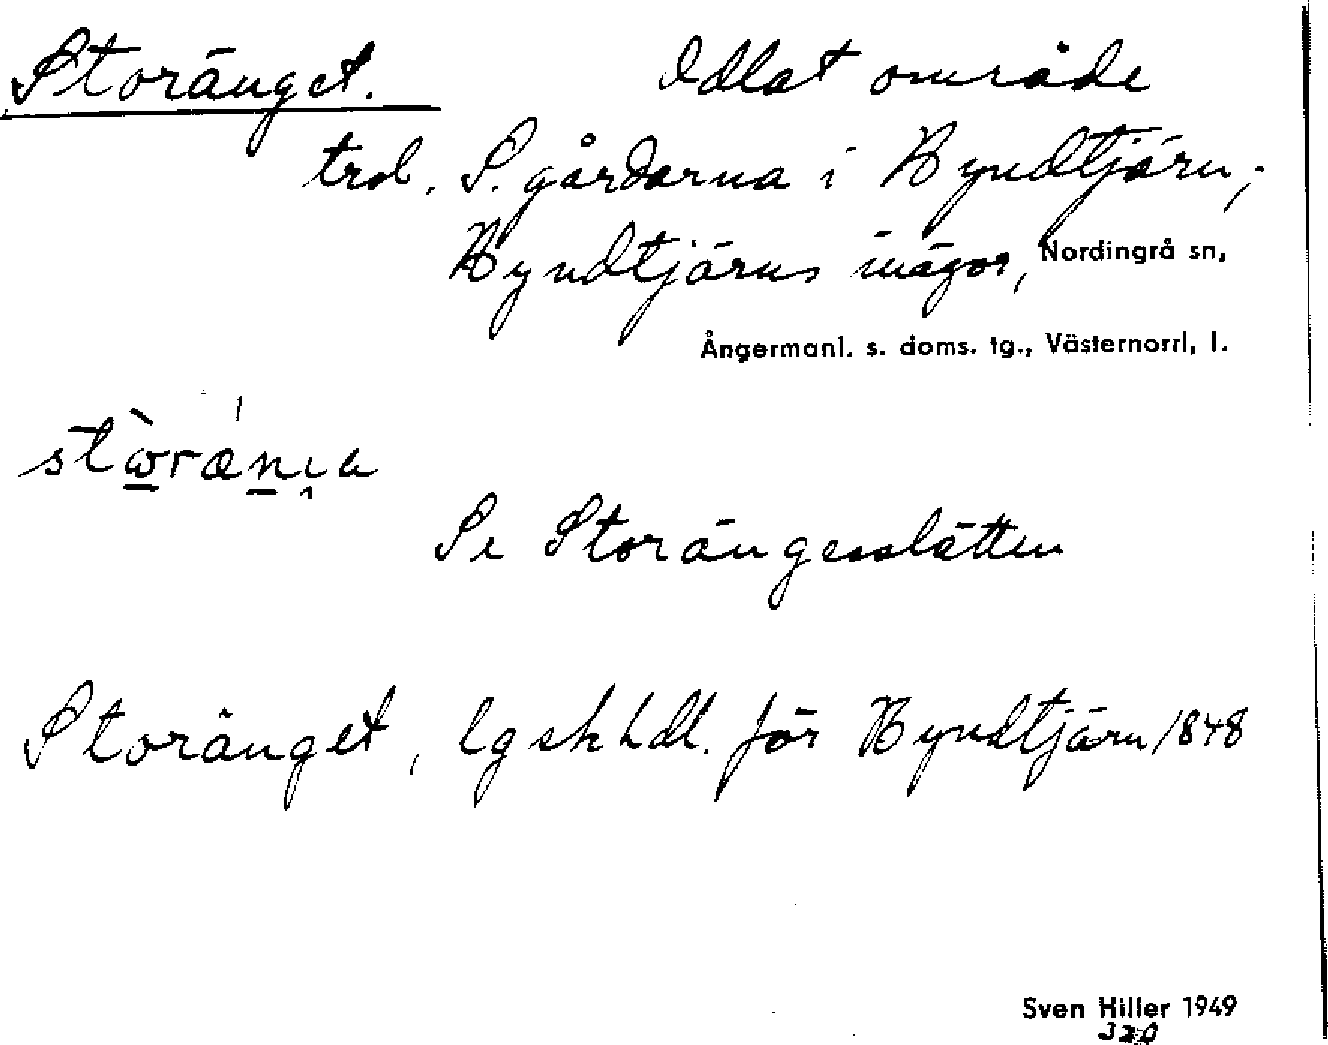 Storänget. Odlat område
trol. S. gårdarna i Byndtjärn,
Byndtjärns inägor, Nordingrå sn,
Ångermanl. s. doms. tg., Västernorrl, l.
Se Storängesslätten
Storänget, lgskhdl. för Byndtjärn 1848
Sven Hiller 1949